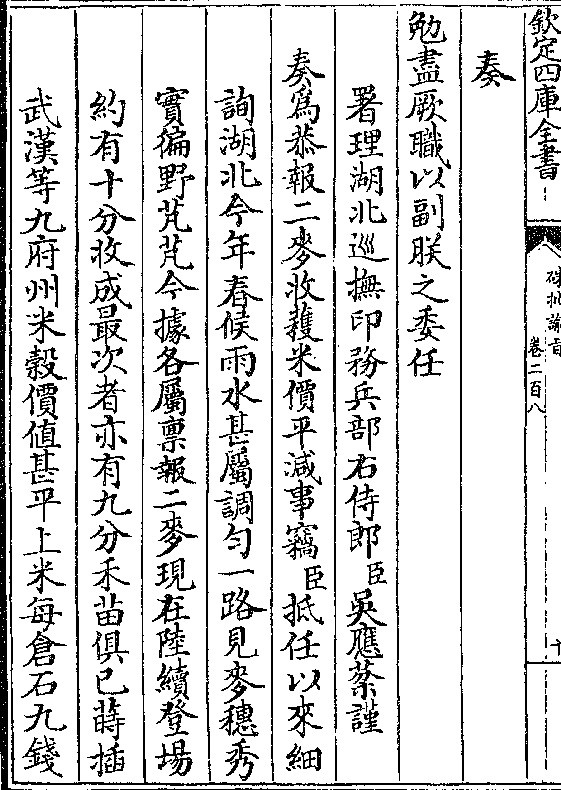 欽定四庫全書
硃批諭旨
卷二百八
十
奏
勉盡厥職以副朕之委任
署理湖北巡撫印務兵部右侍郎臣吳應棻謹
奏為恭報二麥收穫米價平減事竊臣抵任以來細
詢湖北今年春候雨水甚屬調勻一路見麥穗秀
實徧野芃芃今據各屬禀報二麥現在陸續登場
約有十分收成最次者亦有九分禾苗俱已蒔插
武漢等九府州米穀價值甚平上米每倉石九錢